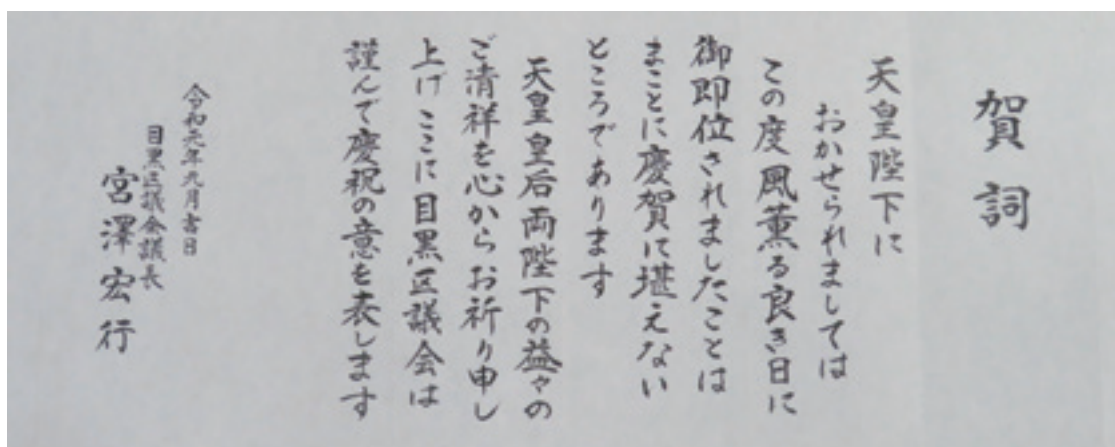 賀詞
天皇陛下に
おかせられましては
この度風薫る良き日に
御即位されましたことは
まことに慶賀に堪えない
ところであります
天皇皇后両陛下の益々の
ご清祥を心からお祈り申し
上げ ここに目黒区議会は
謹んで慶祝の意を表します
令和元年九月吉日
目黒区議会議長
宮澤宏行